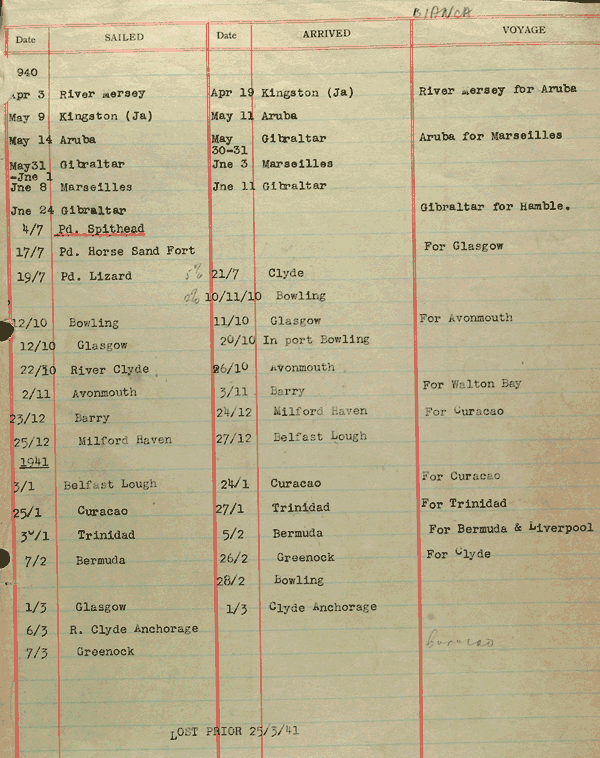 BIANCA
Date SAILED Date ARRIVED VOYAGE
940
Apr 3 River Mersey Apr 19 Kingston (Ja) River Mersey for Aruba
May 9 Kingston (Ja) May 11 Aruba
May 14 Aruba May 30-31 Gibraltar Aruba for Marseilles
May31 -Jne 1 Gibraltar Jne 3 Marseilles
Jne 8 Marseilles Jne 11 Gibraltar
Jne 24 Gibraltar Gibraltar for Hamble.
4/7 Pd. Spithead
17/7 Pd. Horse Sand Fort For Glasgow
19/7 Pd. Lizard 21/7 Clyde
10/11/10 Bowling
12/10 Bowling 11/10 Glasgow For Avonmouth
12/10 Glasgow 20/10 In port Bowling
22/10 River Clyde 26/10 Avonmouth
2/11 Avonmouth 3/11 Barry For Walton Bay
23/12 Barry 24/12 Milford Haven For Curacao
25/12 Milford Haven 27/12 Belfast Lough
1941
3/1 Belfast Lough 24/1 Curacao For Curacao
25/1 Curacao 27/1 Trinidad For Trinidad
/1 Trinidad 5/2 Bermuda For Bermuda & Liverpool
7/2 Bermuda 26/2 Greenock For Clyde
28/2 Bowling
1/3 Glasgow 1/3 Clyde Anchorage
6/3 R. Clyde Anchorage
7/3 Greenock Curacao
LOST PRIOR 25/3/41